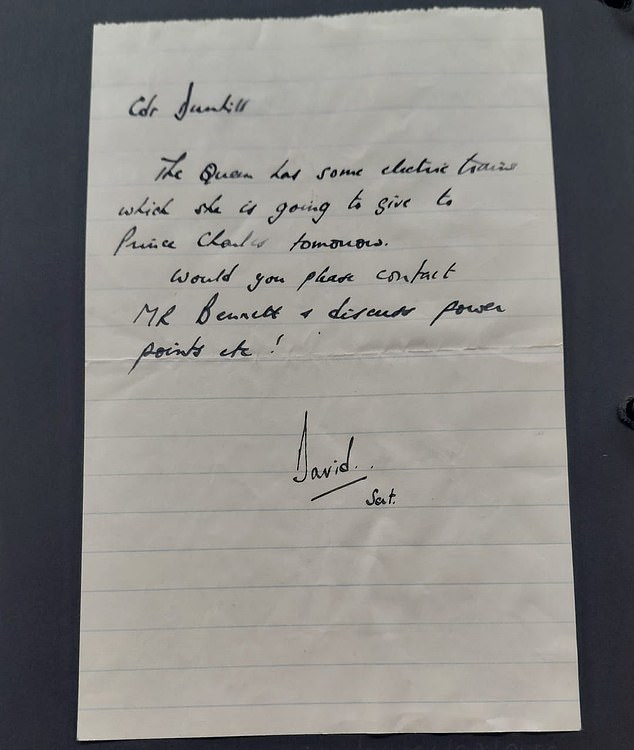 Cdr Dunhill
The Queen has some electric trains
which she is going to give to
Prince Charles tomorrow.
Would you please contact
MR Bennett & discuss power
points etc !
David.
Sat.